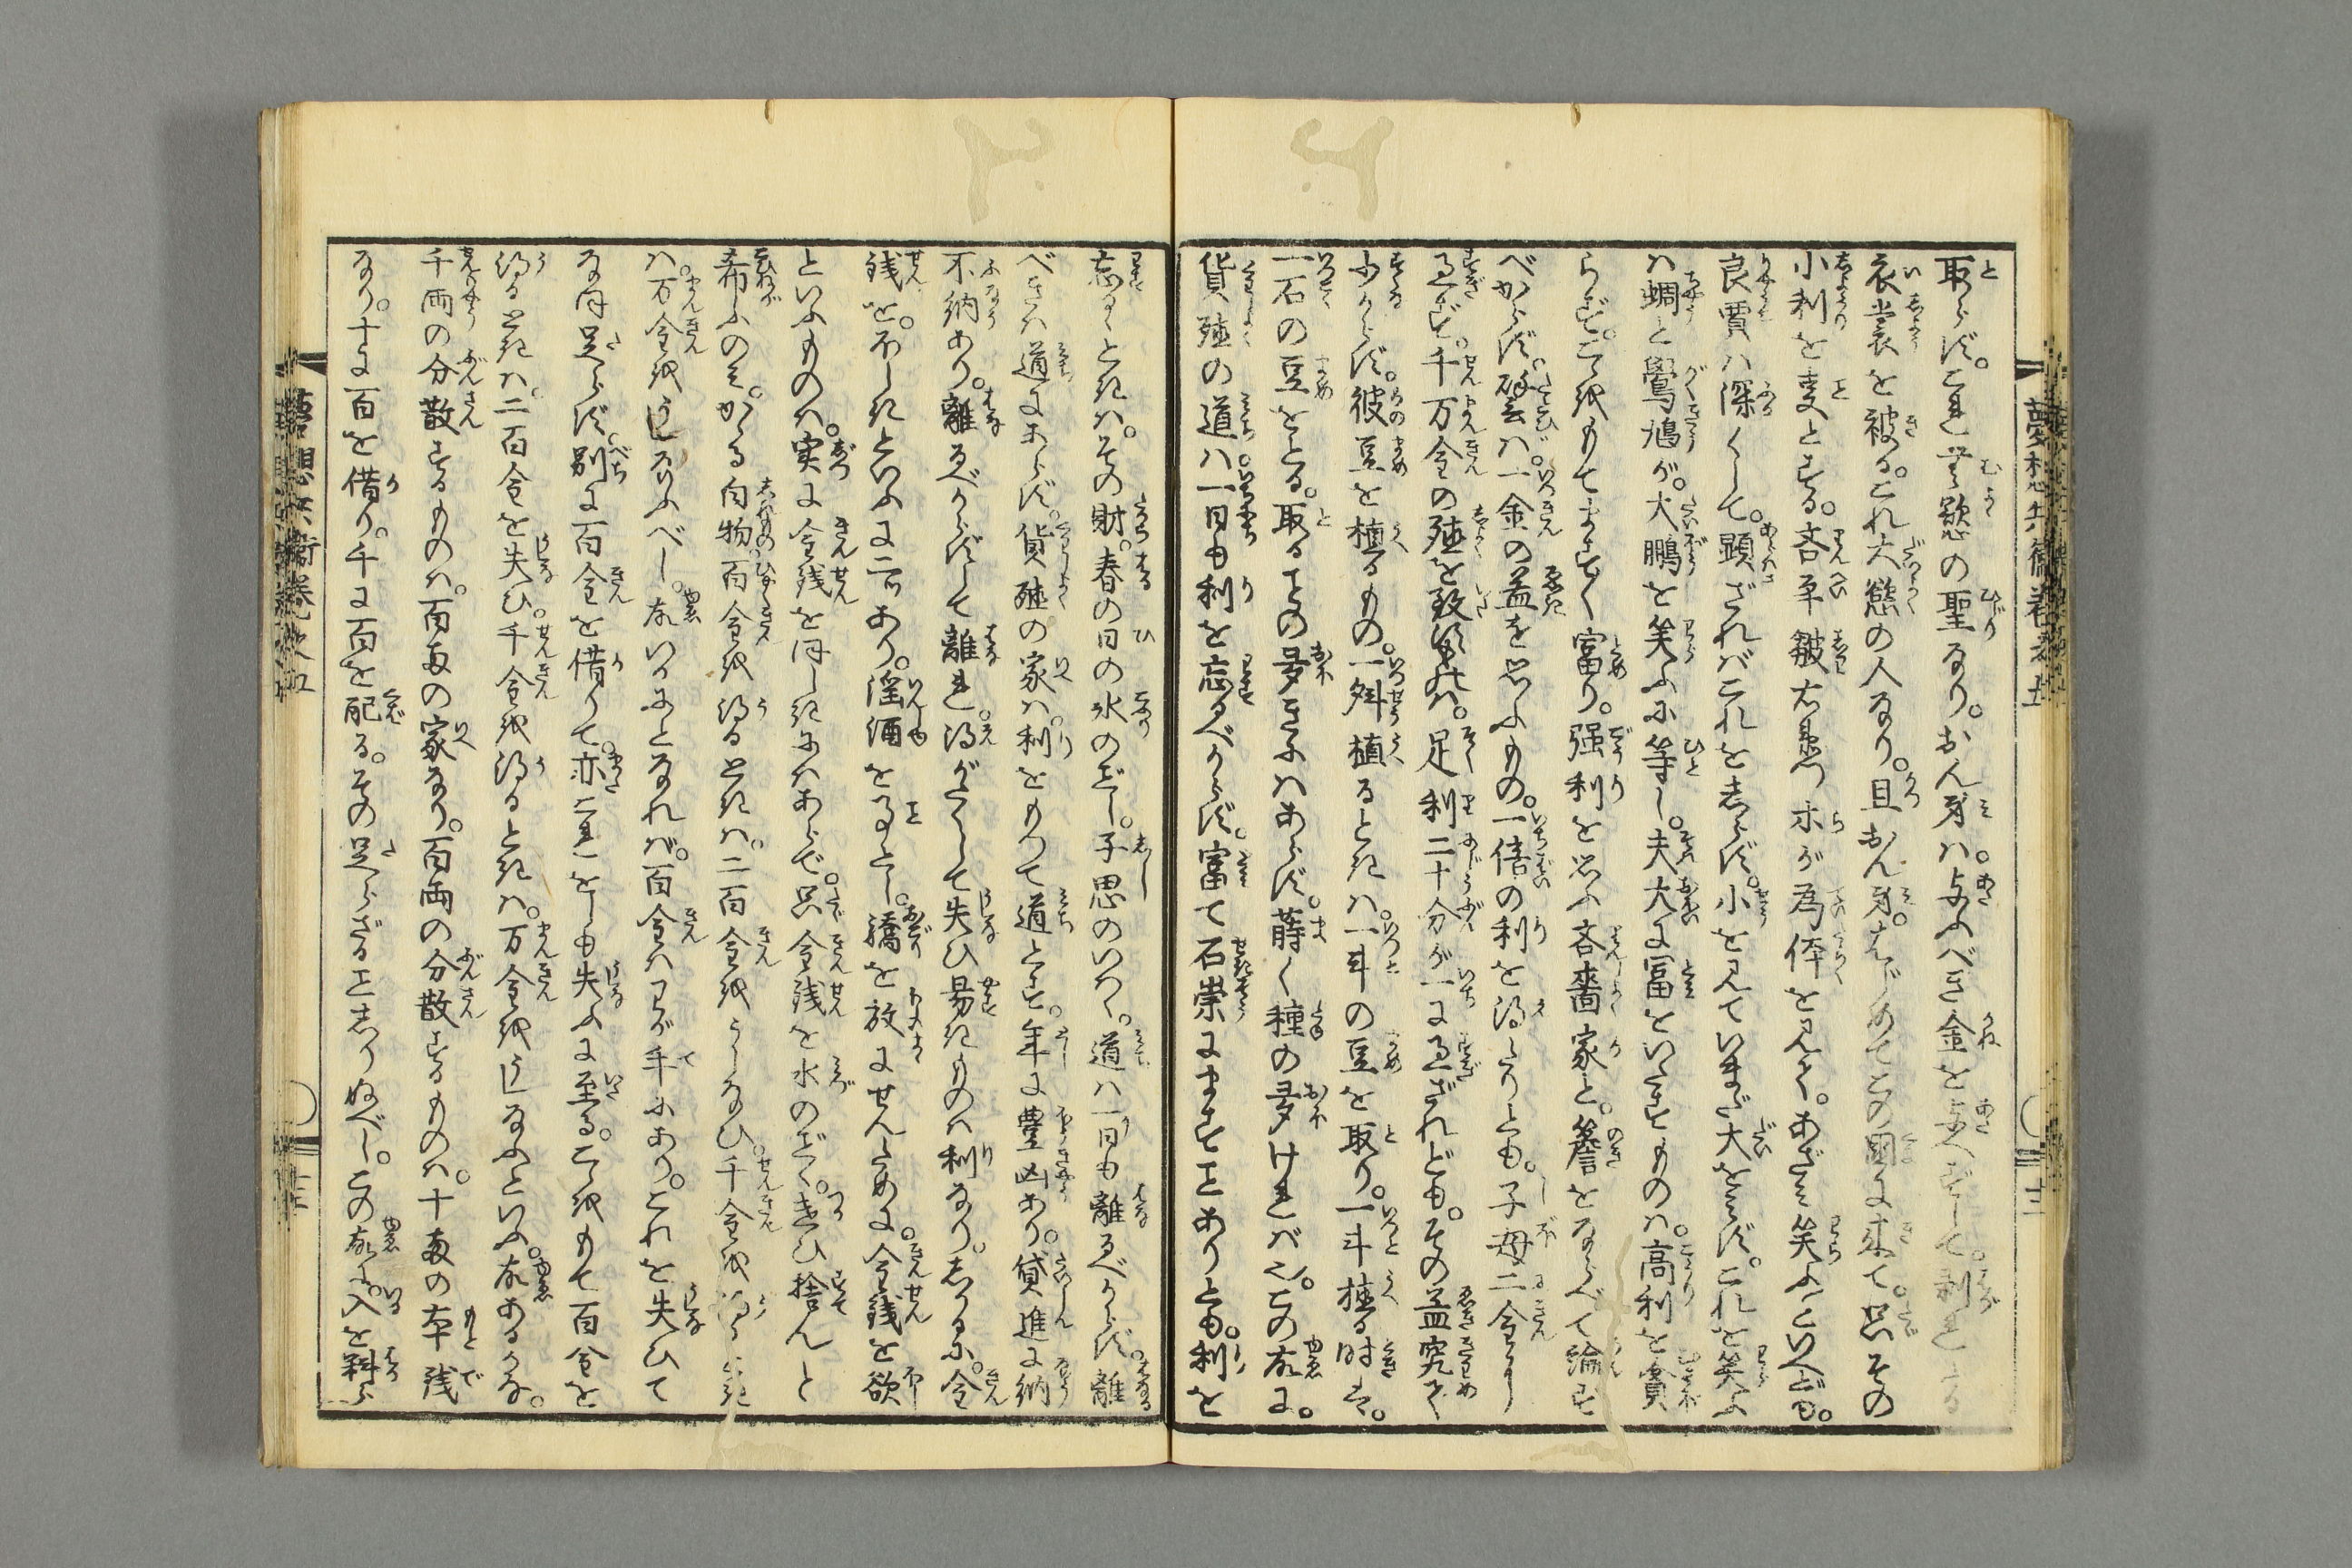 夢想兵衛巻之五
取らず。これ無慾の聖なり。おん身ハ。与ふべき金を与へずして。剥とる
衣裳を被る。これ大慾の人なり。且おん身。はじめてこの国に来て。只その
小利を
良賈ハ深くして。顕ざれバこれをしらず。小を見ていまだ大をみず。これを笑ふ
ハ蜩と鷽鳩が。大鵬を笑ふに等し。夫大に冨をいたすものハ。高利を貪
らず。こゝをもてますます富り。强利を思ふ吝嗇家と。簷をならべて論ず
べからず。譬バ。一金の益を思ふもの。一倍の利を得たりとも。子母二金に
過ず。千万金の殖を致すものハ。足利二十分が一に過ざれども。その益究て
少からず。彼豆を植るもの。一斛植るときハ。一斗の豆を取り。一斗植る時は。
一石の豆をとる。取ることの多きにハあらず。蒔く種の多けれバ也。この故に。
貨殖の道ハ一日も利を忘るべからず。富て石崇にますことありとも。利を
忘るゝときハ。その財。春の日の氷のごとし。子思のいはく。道ハ一日も離るべからず。離
べきハ道にあらず。貨殖の家ハ。利をもつて道とす。年に豊凶あり。貸進に納
不納あり。離るべからずして離れ。得がたくして失ひ易きものハ利なり。しかるに。金
銭を。ほしきといふに二ツあり。淫酒を事とし。驕を放にせんために。金銭を欲
といふものハ。実に金銭をほしきにハあらで。只金銭を水のごとく。遣ひ捨んと
希ふのみ。かゝる白物。百金を得るときハ。二百金をうしなひ。千金を得るときハ
ハ。万金をうしなふべし。故いかにとなれば。百金ハわが手にあり。これを失ひて
なほ足らず。別に百金を借りて。亦これをも失ふに至る。こゝをもて百金を
得るときハ。二百金を失ひ。千金を得るときハ。万金をうしなふといふ。故あるかな。
千両の分散するものハ。百両の家なり。百両の分散するものハ。十両の本銭
なり。十に百を借り。千に百を配る。その足らざることしりぬべし。この故に。入を料ら
夢想兵衛巻之五